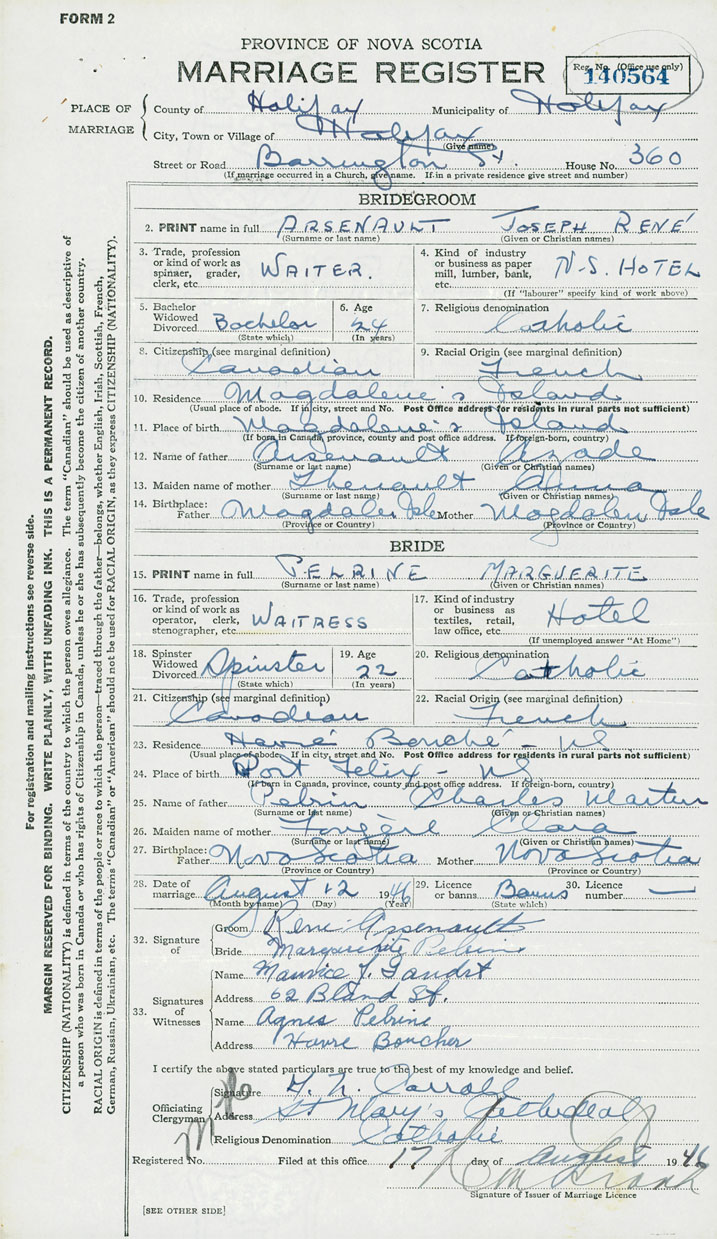 FORM 2
PROVINCE OF NOVA SCOTIA
MARRIAGE REGISTER
Reg. No. (Office use only)
140564
PLACE OF MARRIAGE
County of Halifax Municipality of Halifax
City, Town or Village of Halifax
(Give name)
Street or Road Barrington St. House No. 360
(If marriage occurred in a Church, give name. If in a private residence give street and number)
BRIDEGROOM
2. PRINT name in full ARSENAULT JOSEPH RENÉ
(Surname or last name) (Given or Christian names)
3. Trade, profession or kind of work as spinner, grader, clerk, etc. WAITER.
4. Kind of industry or business as paper mill, lumber, bank, etc. N-S. HOTEL
(If "labourer" specify kind of work above)
5. Bachelor Widowed Divorced Bachelor
(State which)
6. Age 24
(In years)
7. Religious denomination Catholic
8. Citizenship (see marginal definition) Canadian
9. Racial Origin (see marginal definition) French
10. Residence Magdalene's Island
(Usual place of abode. If in city, street and No. Post Office address for residents in rural parts not sufficient)
11. Place of birth Magdalene's Island
(If born in Canada, province, county and post office address. If foreign-born, country)
12. Name of father Arsenault Azade
(Surname or last name) (Given or Christian names)
13. Maiden name of mother Thenault Alma
(Surname or last name) (Given or Christian names)
14. Birthplace: Father Magdalen Isle Mother Magdalen Isle
(Province or Country) (Province or Country)
BRIDE
15. PRINT name in full PELRINE MARGUERITE
(Surname or last name) (Given or Christian names)
16. Trade, profession or kind of work as operator, clerk, stenographer, etc. WAITRESS
17. Kind of industry or business as textiles, retail, law office, etc. Hotel
(If unemployed answer "At Home")
18. Spinster Widowed Divorced Spinster
(State which)
19. Age 22
(In years)
20. Religious denomination Catholic
21. Citizenship (see marginal definition) Canadian
22. Racial Origin (see marginal definition) French
23. Residence Havré Bouché - NS
(Usual place of abode. If in city, street and No. Post Office address for residents in rural parts not sufficient)
24. Place of birth Port Felix - NS
(If born in Canada, province, county and post office address. If foreign-born, country)
25. Name of father Pelrin Charles Martin
(Surname or last name) (Given or Christian names)
26. Maiden name of mother Fougère Clara
(Surname or last name) (Given or Christian names)
27. Birthplace: Father Nova Scotia Mother Nova Scotia
(Province or Country) (Province or Country)
28. Date of marriage August 12 1946
(Month by name) (Day) (Year)
29. Licence or banns Banns
(State which)
30. Licence number —
32. Signature of
Groom René Arsenault
Bride Marguerite Pelrine
33. Signatures of Witnesses
Name Maurice J. Gaudet
Address 62 Bland St.
Name Agnes Pelrine
Address Havre Boucher
I certify the above stated particulars are true to the best of my knowledge and belief.
Officiating Clergyman
Signature Carroll
Address St Mary's Cathedral
Religious Denomination Catholic
Registered No. Filed at this office 17 day of August 1946
Signature of Issuer of Marriage Licence
[SEE OTHER SIDE]
For registration and mailing instructions see reverse side.
MARGIN RESERVED FOR BINDING. WRITE PLAINLY, WITH UNFADING INK. THIS IS A PERMANENT RECORD.
CITIZENSHIP (NATIONALITY) is defined in terms of the country to which the person owes allegiance. The term "Canadian" should be used as descriptive of
a person who was born in Canada or who has rights of Citizenship in Canada, unless he or she has subsequently become the citizen of another country.
RACIAL ORIGIN is defined in terms of the people or race to which the person—traced through the father—belongs, whether English, Irish, Scottish, French,
German, Russian, Ukrainian, etc. The terms "Canadian" or "American" should not be used for RACIAL ORIGIN, as they express CITIZENSHIP (NATIONALITY).